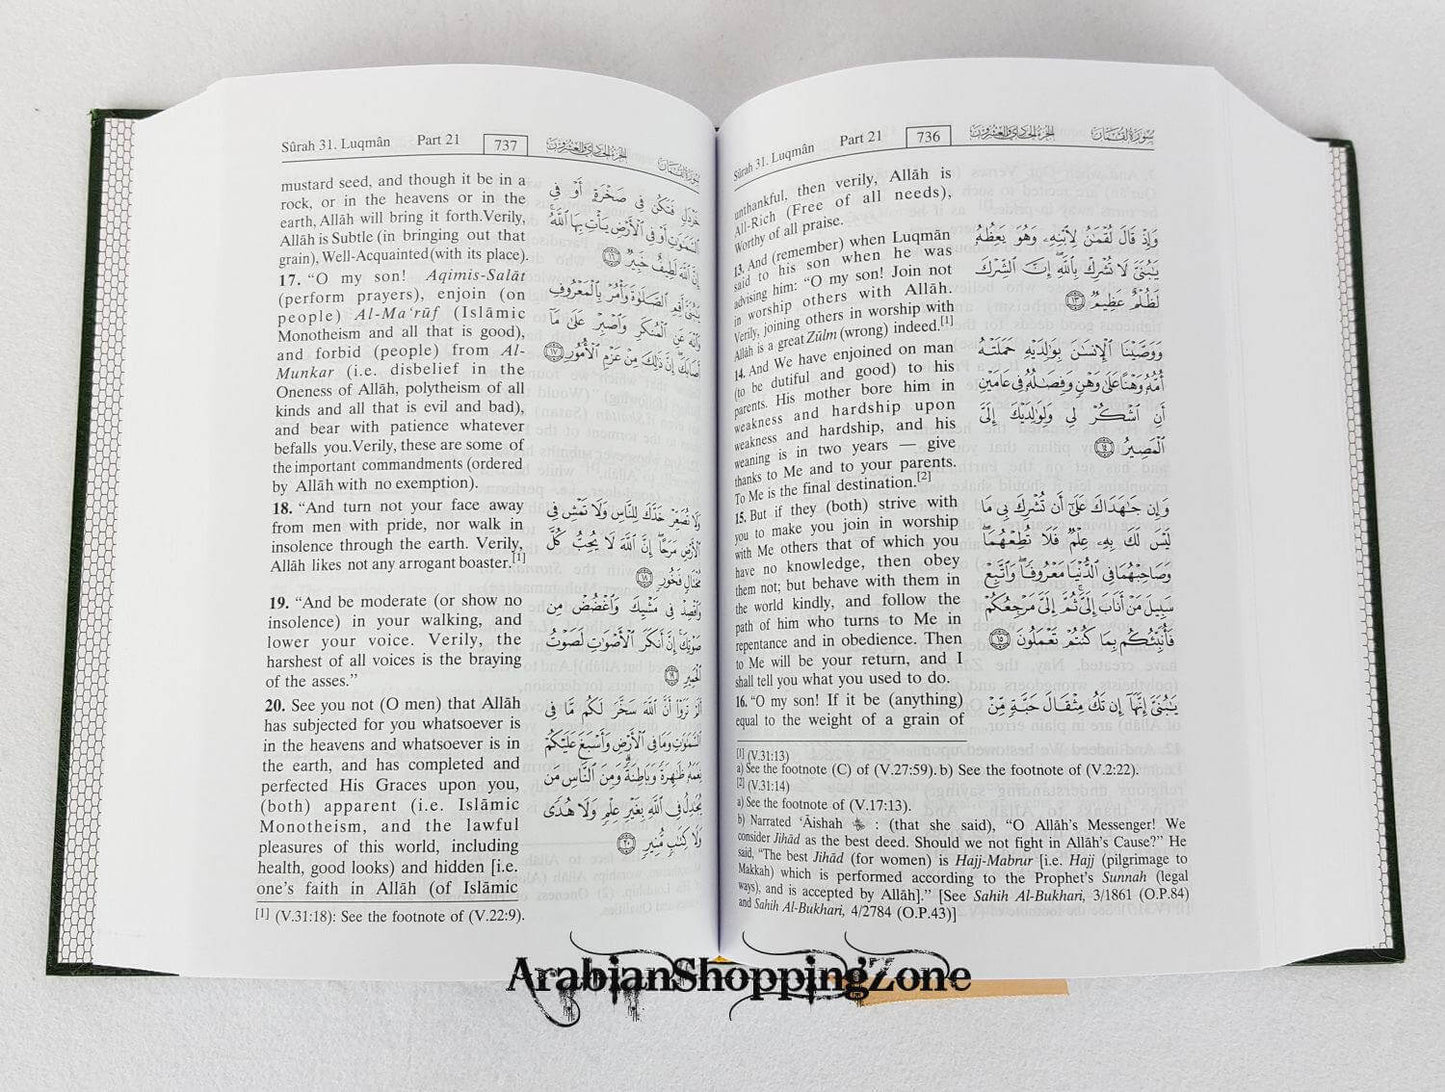 Sûrah 31. Luqmân Part 21 736 الجزء الحادي والعشرون سورة لقمان
unthankful, then verily, Allâh is
All-Rich (Free of all needs),
Worthy of all praise.
13. And (remember) when Luqmân
said to his son when he was
advising him: “O my son! Join not
in worship others with Allâh.
Verily, joining others in worship with
Allâh is a great Zûlm (wrong) indeed.[1]
14. And We have enjoined on man
(to be dutiful and good) to his
parents. His mother bore him in
weakness and hardship upon
weakness and hardship, and his
weaning is in two years — give
thanks to Me and to your parents.
To Me is the final destination.[2]
15. But if they (both) strive with
you to make you join in worship
with Me others that of which you
have no knowledge, then obey
them not; but behave with them in
the world kindly, and follow the
path of him who turns to Me in
repentance and in obedience. Then
to Me will be your return, and I
shall tell you what you used to do.
16. “O my son! If it be (anything)
equal to the weight of a grain of
وَإِذْ قَالَ لُقْمَٰنُ لِٱبْنِهِۦ وَهُوَ يَعِظُهُۥ
يَٰبُنَىَّ لَا تُشْرِكْ بِٱللَّهِ ۖ إِنَّ ٱلشِّرْكَ
لَظُلْمٌ عَظِيمٌ ١٣
وَوَصَّيْنَا ٱلْإِنسَٰنَ بِوَٰلِدَيْهِ حَمَلَتْهُ
أُمُّهُۥ وَهْنًا عَلَىٰ وَهْنٍ وَفِصَٰلُهُۥ فِى عَامَيْنِ
أَنِ ٱشْكُرْ لِى وَلِوَٰلِدَيْكَ إِلَىَّ
ٱلْمَصِيرُ ١٤
وَإِن جَٰهَدَاكَ عَلَىٰٓ أَن تُشْرِكَ بِى مَا
لَيْسَ لَكَ بِهِۦ عِلْمٌ فَلَا تُطِعْهُمَا ۖ
وَصَاحِبْهُمَا فِى ٱلدُّنْيَا مَعْرُوفًا ۖ وَٱتَّبِعْ
سَبِيلَ مَنْ أَنَابَ إِلَىَّ ۚ ثُمَّ إِلَىَّ مَرْجِعُكُمْ
فَأُنَبِّئُكُم بِمَا كُنتُمْ تَعْمَلُونَ ١٥
يَٰبُنَىَّ إِنَّهَآ إِن تَكُ مِثْقَالَ حَبَّةٍ مِّنْ
[1] (V.31:13)
a) See the footnote (C) of (V.27:59). b) See the footnote of (V.2:22).
[2] (V.31:14)
a) See the footnote of (V.17:13).
b) Narrated ‘Āishah : (that she said), “O Allâh’s Messenger! We
consider Jihâd as the best deed. Should we not fight in Allâh’s Cause?” He
said, “The best Jihâd (for women) is Hajj-Mabrur [i.e. Hajj (pilgrimage to
Makkah) which is performed according to the Prophet’s Sunnah (legal
ways), and is accepted by Allâh].” [See Sahih Al-Bukhari, 3/1861 (O.P.84)
and Sahih Al-Bukhari, 4/2784 (O.P.43)]
Sûrah 31. Luqmân Part 21 737 الجزء الحادي والعشرون سورة لقمان
mustard seed, and though it be in a
rock, or in the heavens or in the
earth, Allâh will bring it forth.Verily,
Allâh is Subtle (in bringing out that
grain), Well-Acquainted (with its place).
17. “O my son! Aqimis-Salât
(perform prayers), enjoin (on
people) Al-Ma‘rûf (Islâmic
Monotheism and all that is good),
and forbid (people) from Al-
Munkar (i.e. disbelief in the
Oneness of Allâh, polytheism of all
kinds and all that is evil and bad),
and bear with patience whatever
befalls you.Verily, these are some of
the important commandments (ordered
by Allâh with no exemption).
18. “And turn not your face away
from men with pride, nor walk in
insolence through the earth. Verily,
Allâh likes not any arrogant boaster.[1]
19. “And be moderate (or show no
insolence) in your walking, and
lower your voice. Verily, the
harshest of all voices is the braying
of the asses.”
20. See you not (O men) that Allâh
has subjected for you whatsoever is
in the heavens and whatsoever is in
the earth, and has completed and
perfected His Graces upon you,
(both) apparent (i.e. Islâmic
Monotheism, and the lawful
pleasures of this world, including
health, good looks) and hidden [i.e.
one’s faith in Allâh (of Islâmic
خَرْدَلٍ فَتَكُن فِى صَخْرَةٍ أَوْ فِى
ٱلسَّمَٰوَٰتِ أَوْ فِى ٱلْأَرْضِ يَأْتِ بِهَا ٱللَّهُ ۚ
إِنَّ ٱللَّهَ لَطِيفٌ خَبِيرٌ ١٦
يَٰبُنَىَّ أَقِمِ ٱلصَّلَوٰةَ وَأْمُرْ بِٱلْمَعْرُوفِ
وَٱنْهَ عَنِ ٱلْمُنكَرِ وَٱصْبِرْ عَلَىٰ مَآ
أَصَابَكَ ۖ إِنَّ ذَٰلِكَ مِنْ عَزْمِ ٱلْأُمُورِ ١٧
وَلَا تُصَعِّرْ خَدَّكَ لِلنَّاسِ وَلَا تَمْشِ فِى
ٱلْأَرْضِ مَرَحًا ۖ إِنَّ ٱللَّهَ لَا يُحِبُّ كُلَّ
مُخْتَالٍ فَخُورٍ ١٨
وَٱقْصِدْ فِى مَشْيِكَ وَٱغْضُضْ مِن
صَوْتِكَ ۚ إِنَّ أَنكَرَ ٱلْأَصْوَٰتِ لَصَوْتُ
ٱلْحَمِيرِ ١٩
أَلَمْ تَرَوْا۟ أَنَّ ٱللَّهَ سَخَّرَ لَكُم مَّا فِى
ٱلسَّمَٰوَٰتِ وَمَا فِى ٱلْأَرْضِ وَأَسْبَغَ عَلَيْكُمْ
نِعَمَهُۥ ظَٰهِرَةً وَبَاطِنَةً ۗ وَمِنَ ٱلنَّاسِ مَن
يُجَٰدِلُ فِى ٱللَّهِ بِغَيْرِ عِلْمٍ وَلَا هُدًى
وَلَا كِتَٰبٍ مُّنِيرٍ ٢٠
[1] (V.31:18): See the footnote of (V.22:9).
ArabianShoppingZone